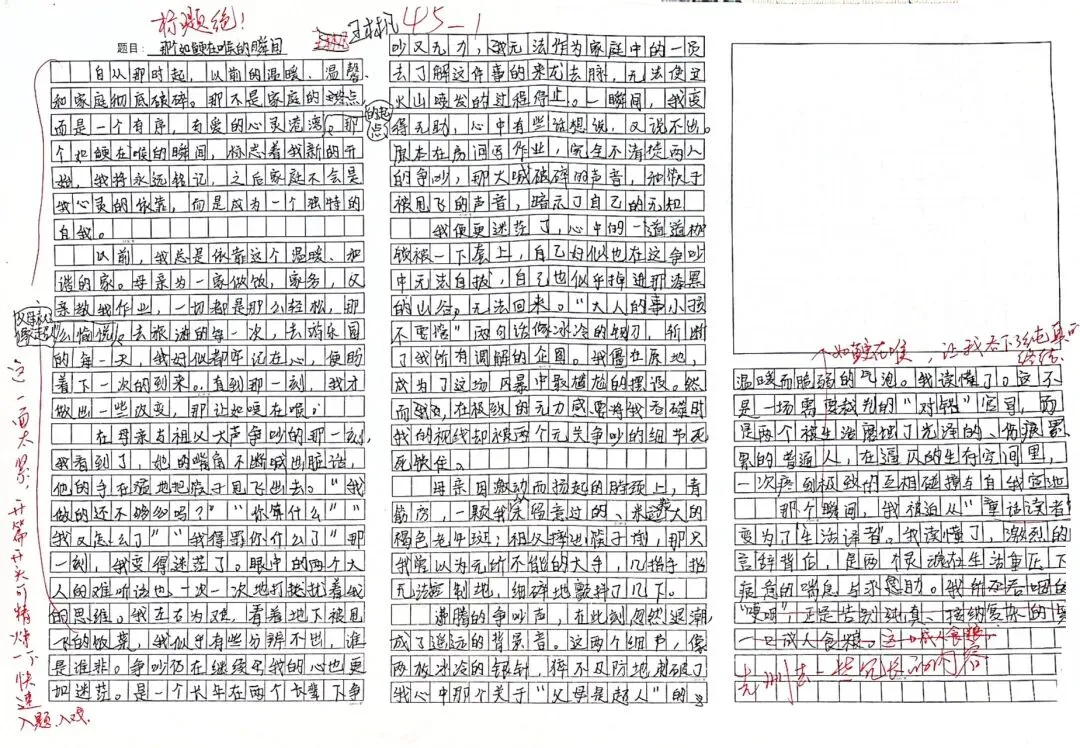 标题绝！
45-1
题目：那如鲠在喉的瞬间
自从那时起，以前的温暖、温馨
和家庭彻底破碎。那不是家庭的终点
而是一个有序，有爱的心灵港湾。那
的起点
个如鲠在喉的瞬间，标志着我新的开
始，我将永远铭记，之后家庭不会是
我心灵的依靠，而是成为一个独特的
自我。
以前，我总是依靠这个温暖、和
谐的家。母亲为一家做饭，家务，父
亲教我作业，一切都是那么轻松，那
么愉悦。去旅游的每一次，去游乐园
的每一天，我好似都牢记在心，便盼
着下一次的到来。直到那一刻，我才
做出一些改变，那让如哽在喉。
在母亲与祖父大声争吵的那一刻，
我看到了，她的嘴角不断喊出脏话，
他的手在猛地把筷子甩飞出去。“我
做的还不够多吗？”“你算什么”“
我又怎么了”“我得罪你什么了”那
一刻，我变得迷茫了。眼中的两个大
人的难听话也一次一次地打扰着我
的思维。我左右为难，看着地下被甩
飞的饭菜，我似乎有些分辨不出，谁
是谁非。争吵仍在继续，我的心也更
加迷茫。是一个长年在两个长辈下争
吵又无力，我无法作为家庭中的一员
去了解这件事的来龙去脉，无法使这
火山喷发的过程停止。一瞬间，我变
得无助，心中有些话想说，又说不出。
原本在房间写作业，完全不清楚两人
的争吵，那大喊破碎的声音，和筷子
被甩飞的声音，暗示了自己的无知
我便更迷茫了，心中的一道道枷
锁被一下套上，自己好似也在这争吵
中无法自拔，自己也似乎掉进那漆黑
的山谷，无法回来。“大人的事小孩
不要管”两句话像冰冷的钢刀，斩断
了我所有调解的企图。我僵在原地，
成为了这场风暴中最尴尬的摆设。然
而，在极致的无力感要将我吞碰时
我的视线却被两个无关争吵的细节死
死锁住。
母亲因激动而扬起的脖颈上，青
筋旁，一颗我从未留意过的、米粒大的
褐色老年斑；祖父摔过筷子后，那只
我曾以为无所不能的大手，几指手指
无法控制地，细碎地颤抖了几下。
沸腾的争吵声，在此刻忽然退潮，
成了遥远的背景音。这两个细节，像
两枚冰冷的银针，猝不及防地刺破了
我心中那个关于“父母是超人”的
温暖而脆弱的气泡。我读懂了。这不
是一场需要裁判的“对错”官司，而
是两个被生活磨损了光泽的、伤痕累
累的普通人，在逼仄的生存空间里，
一次疼到极致的互相碰撞与自我
那个瞬间，我被迫从“童话读者”
变为了“生活译者”。我读懂了，激烈的
言辞背后，是两个灵魂在生活重压下
疲惫的喘息与求助。我所吞咽的
“哽咽”，正是告别纯真、接纳复杂的第
一口成人食粮。
这一面太累：开篇开头可精炼一下快速
入题、入戏
先删去一些冗长的内容